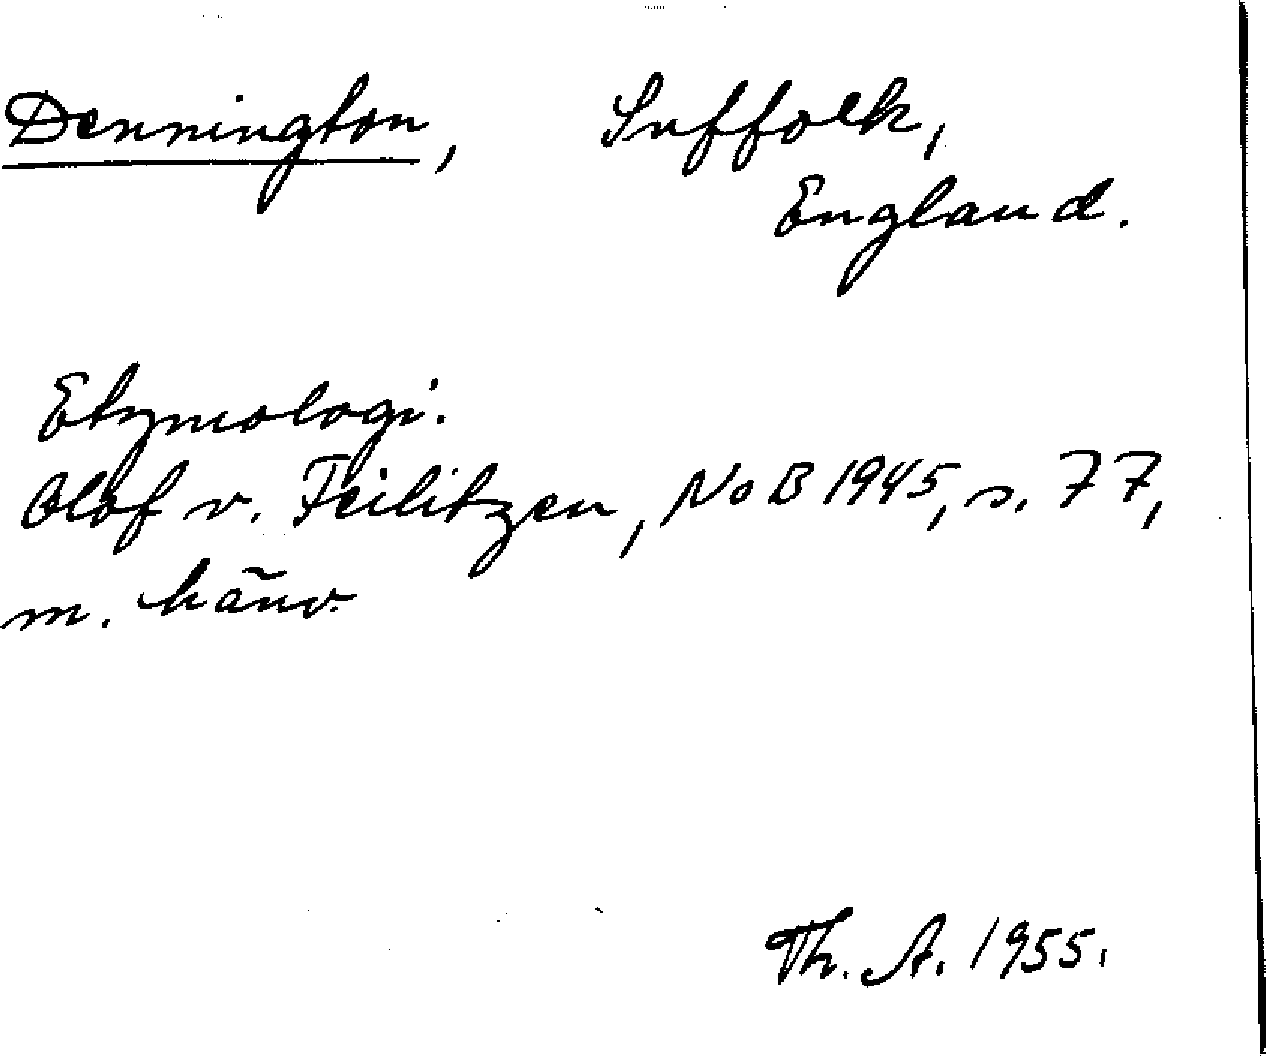 Dennington, Suffolk,
England.
Etymologi.
Olof v. Feilitzen, NoB 1945, s. 77,
m. hänv.
Th. A. 1955.